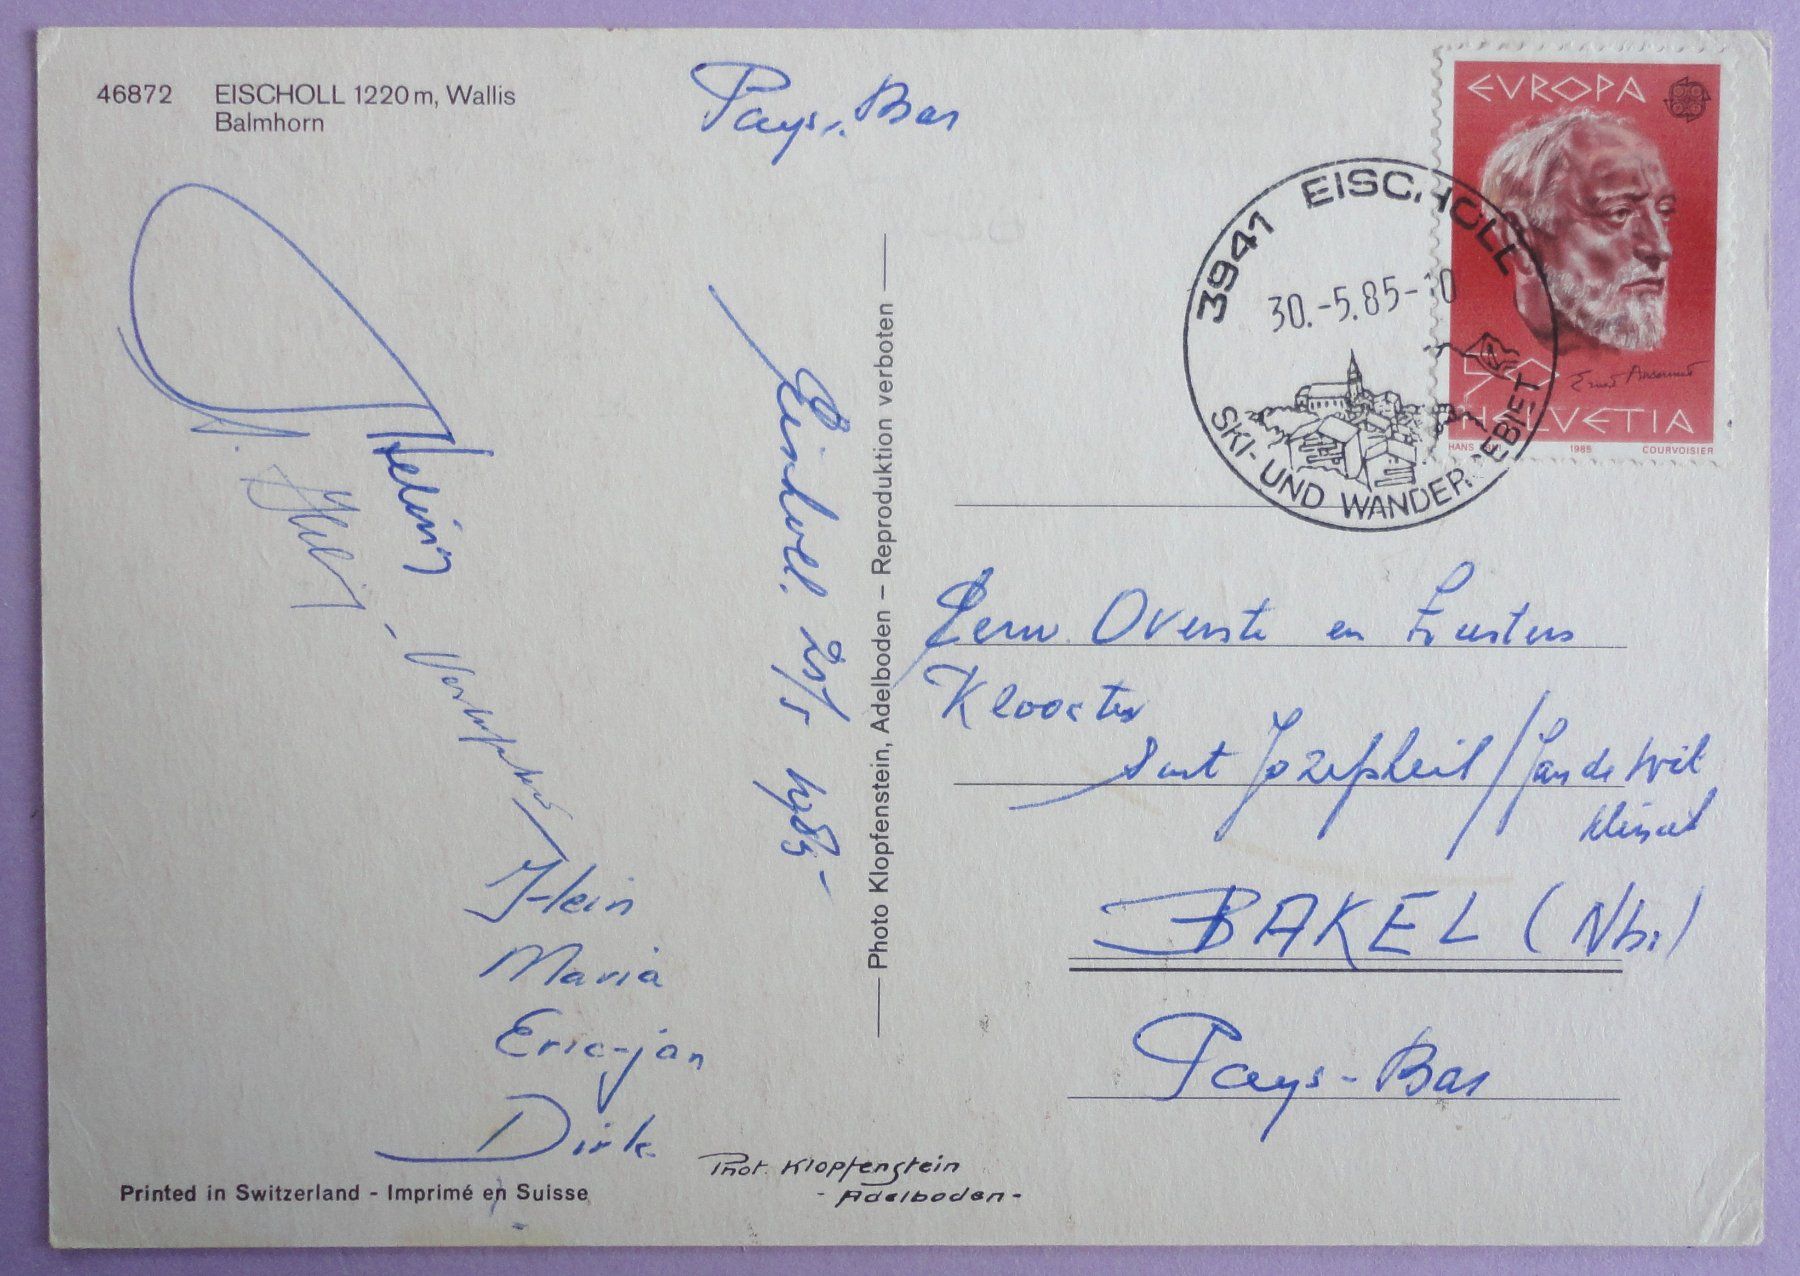 46872 EISCHOLL 1220 m, Wallis
Balmhorn
Pays-Bas
EVROPA
Ernest Ansermet
HELVETIA
HANS 1985 COURVOISIER
3941 EISCHOLL
30.-5.85-10
SKI- UND WANDERGEBIET
Eischoll. 25/5 1985-
Photo Klopfenstein, Adelboden – Reproduktion verboten
Hein
Maria
Eric-jan
Dirk
Eerw. Overste en Zusters
Klooster
Sint Jozefheil / Jan de Wit
BAKEL (Nbr)
Pays-Bas
Phot. Klopfenstein
- Adelboden -
Printed in Switzerland - Imprimé en Suisse